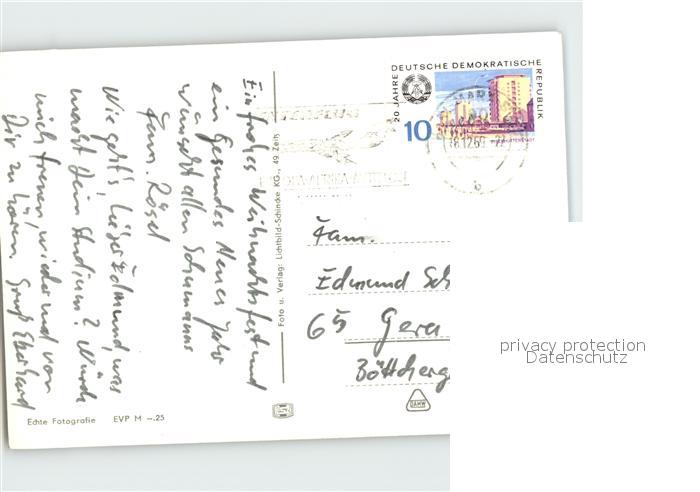 Ein frohes Weihnachtsfest und
ein gesundes Neues Jahr
wünscht allen Schumanns
Fam. Rösel
Wie geht's, lieber Edmund, was
macht Dein Studium? Würde
mich freuen, wieder mal von
Dir zu hören. Gruß Eberhard
Echte Fotografie EVP M –.25
Foto u. Verlag: Lichtbild-Schincke KG., 49 Zeitz
20 JAHRE DEUTSCHE DEMOKRATISCHE REPUBLIK
10
18.12.69
b
Fam.
Edmund Sch
65 Gera
Böttcherg
DAMW
privacy protection
Datenschutz